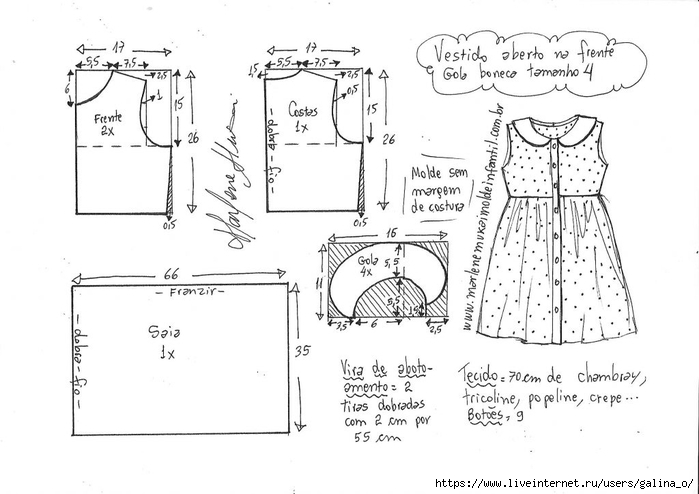 Vestido aberto na frente
e Gola boneca tamanho 4
17
5,5
7,5
2,5
6
1
15
26
Frente
2x
0,5
17
5,5
7,5
1,5
2,5
0,5
15
26
Costas
1x
dobra - fio -
0,5
Molde sem
margem
de costura
www.marlenemukaimoldeinfantil.com.br
Marlene Mukai
66
- Franzir -
Saia
1x
- dobra - fio -
35
16
11
Gola
4x
5,5
5,5
1,5
3,5
6
2,5
Vira de aboto-
amento = 2
tiras dobradas
com 2 cm por
55 cm
Tecido = 70 cm de chambray,
tricoline, popeline, crepe...
Botões = 9
https://www.liveinternet.ru/users/galina_o/